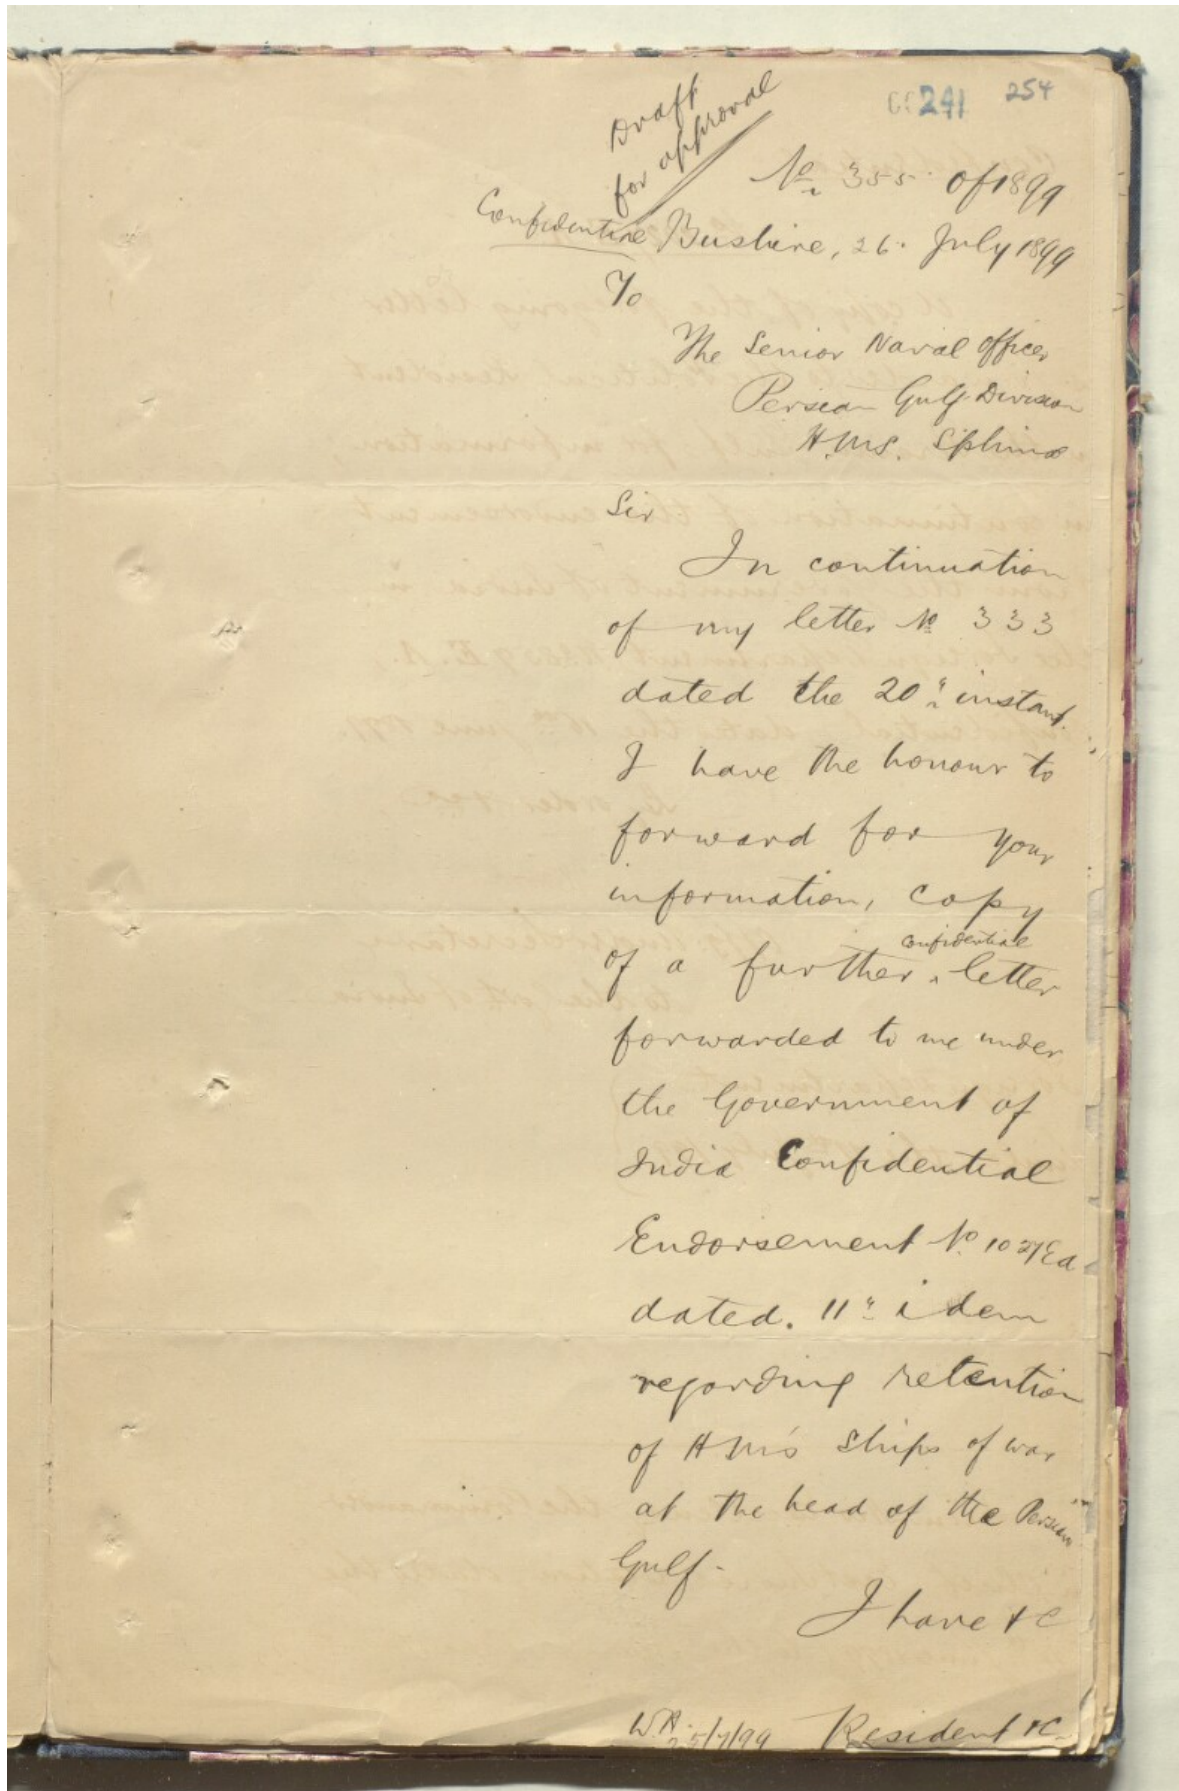 241 254
Draft
for approval
No. 355 of 1899
Confidential Bushire, 26. July 1899
To
The Senior Naval Officer
Persian Gulf Division
H.M.S. Sphinx
Sir
In continuation
of my letter No 333
dated the 20th instant.
I have the honour to
forward for your
information, copy
confidential
of a further ^ letter
forwarded to me under
the Government of
India Confidential
Endorsement No. 1027 Ea
dated. 11th idem
regarding retention
of HM's Ships of war
at the head of the Persian
Gulf.
I have &c
25/7/99 Resident &c